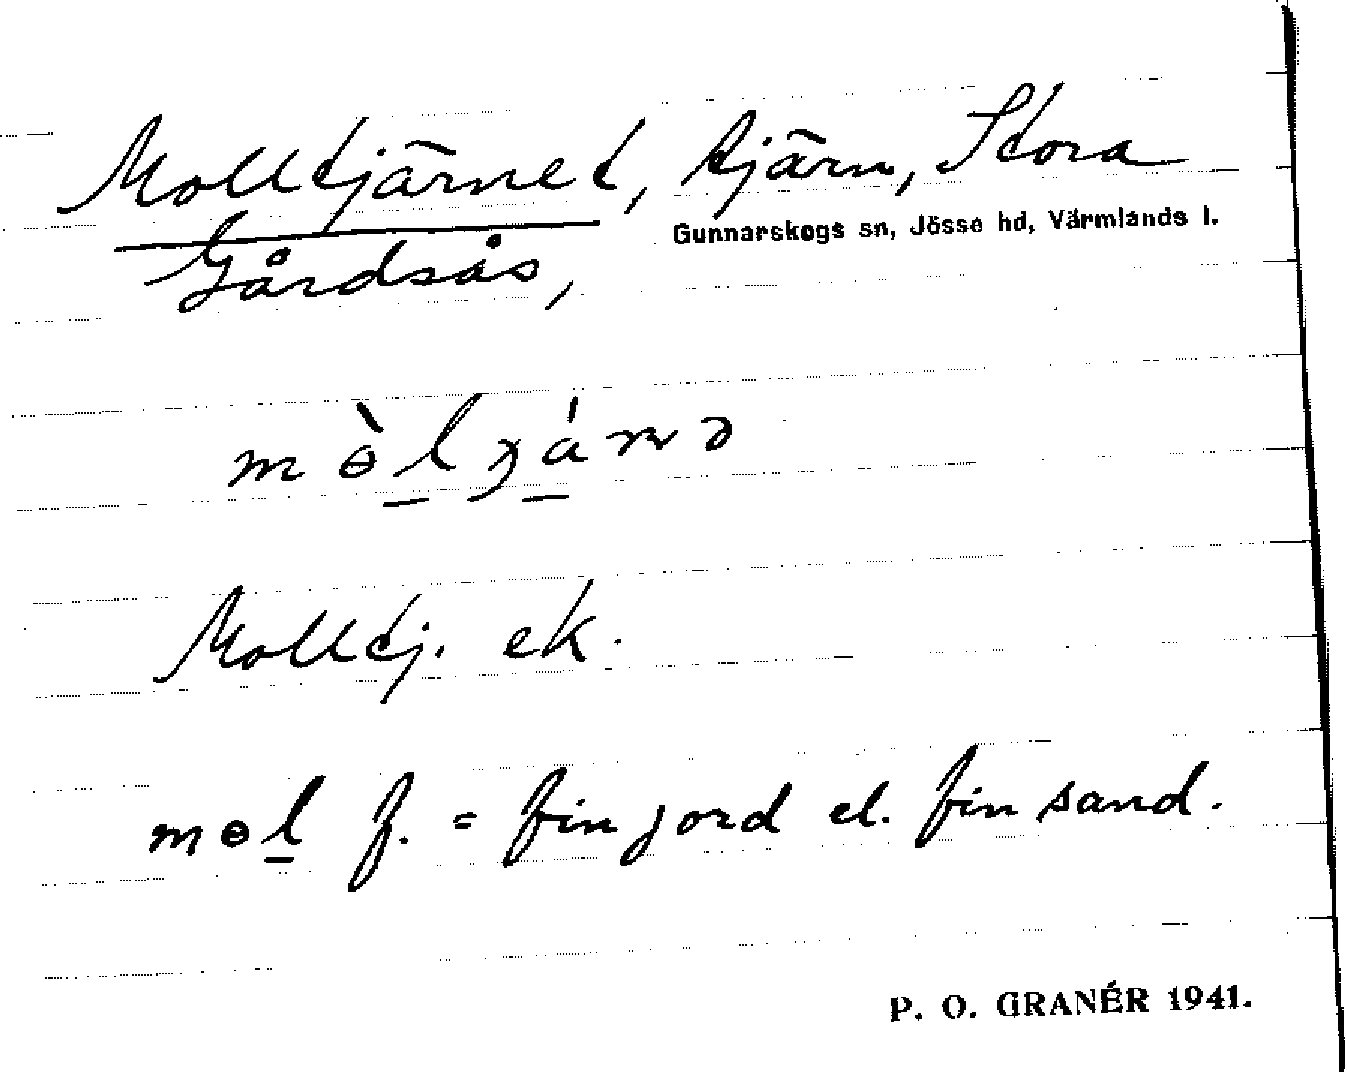 Molltjärnet, tjärn, Stora
Gunnarskogs sn, Jösse hd, Värmlands l.
Gårdsås,
Molltj. ek.
møl f. = fin jord el. fin sand.
P. O. GRANÉR 1941.